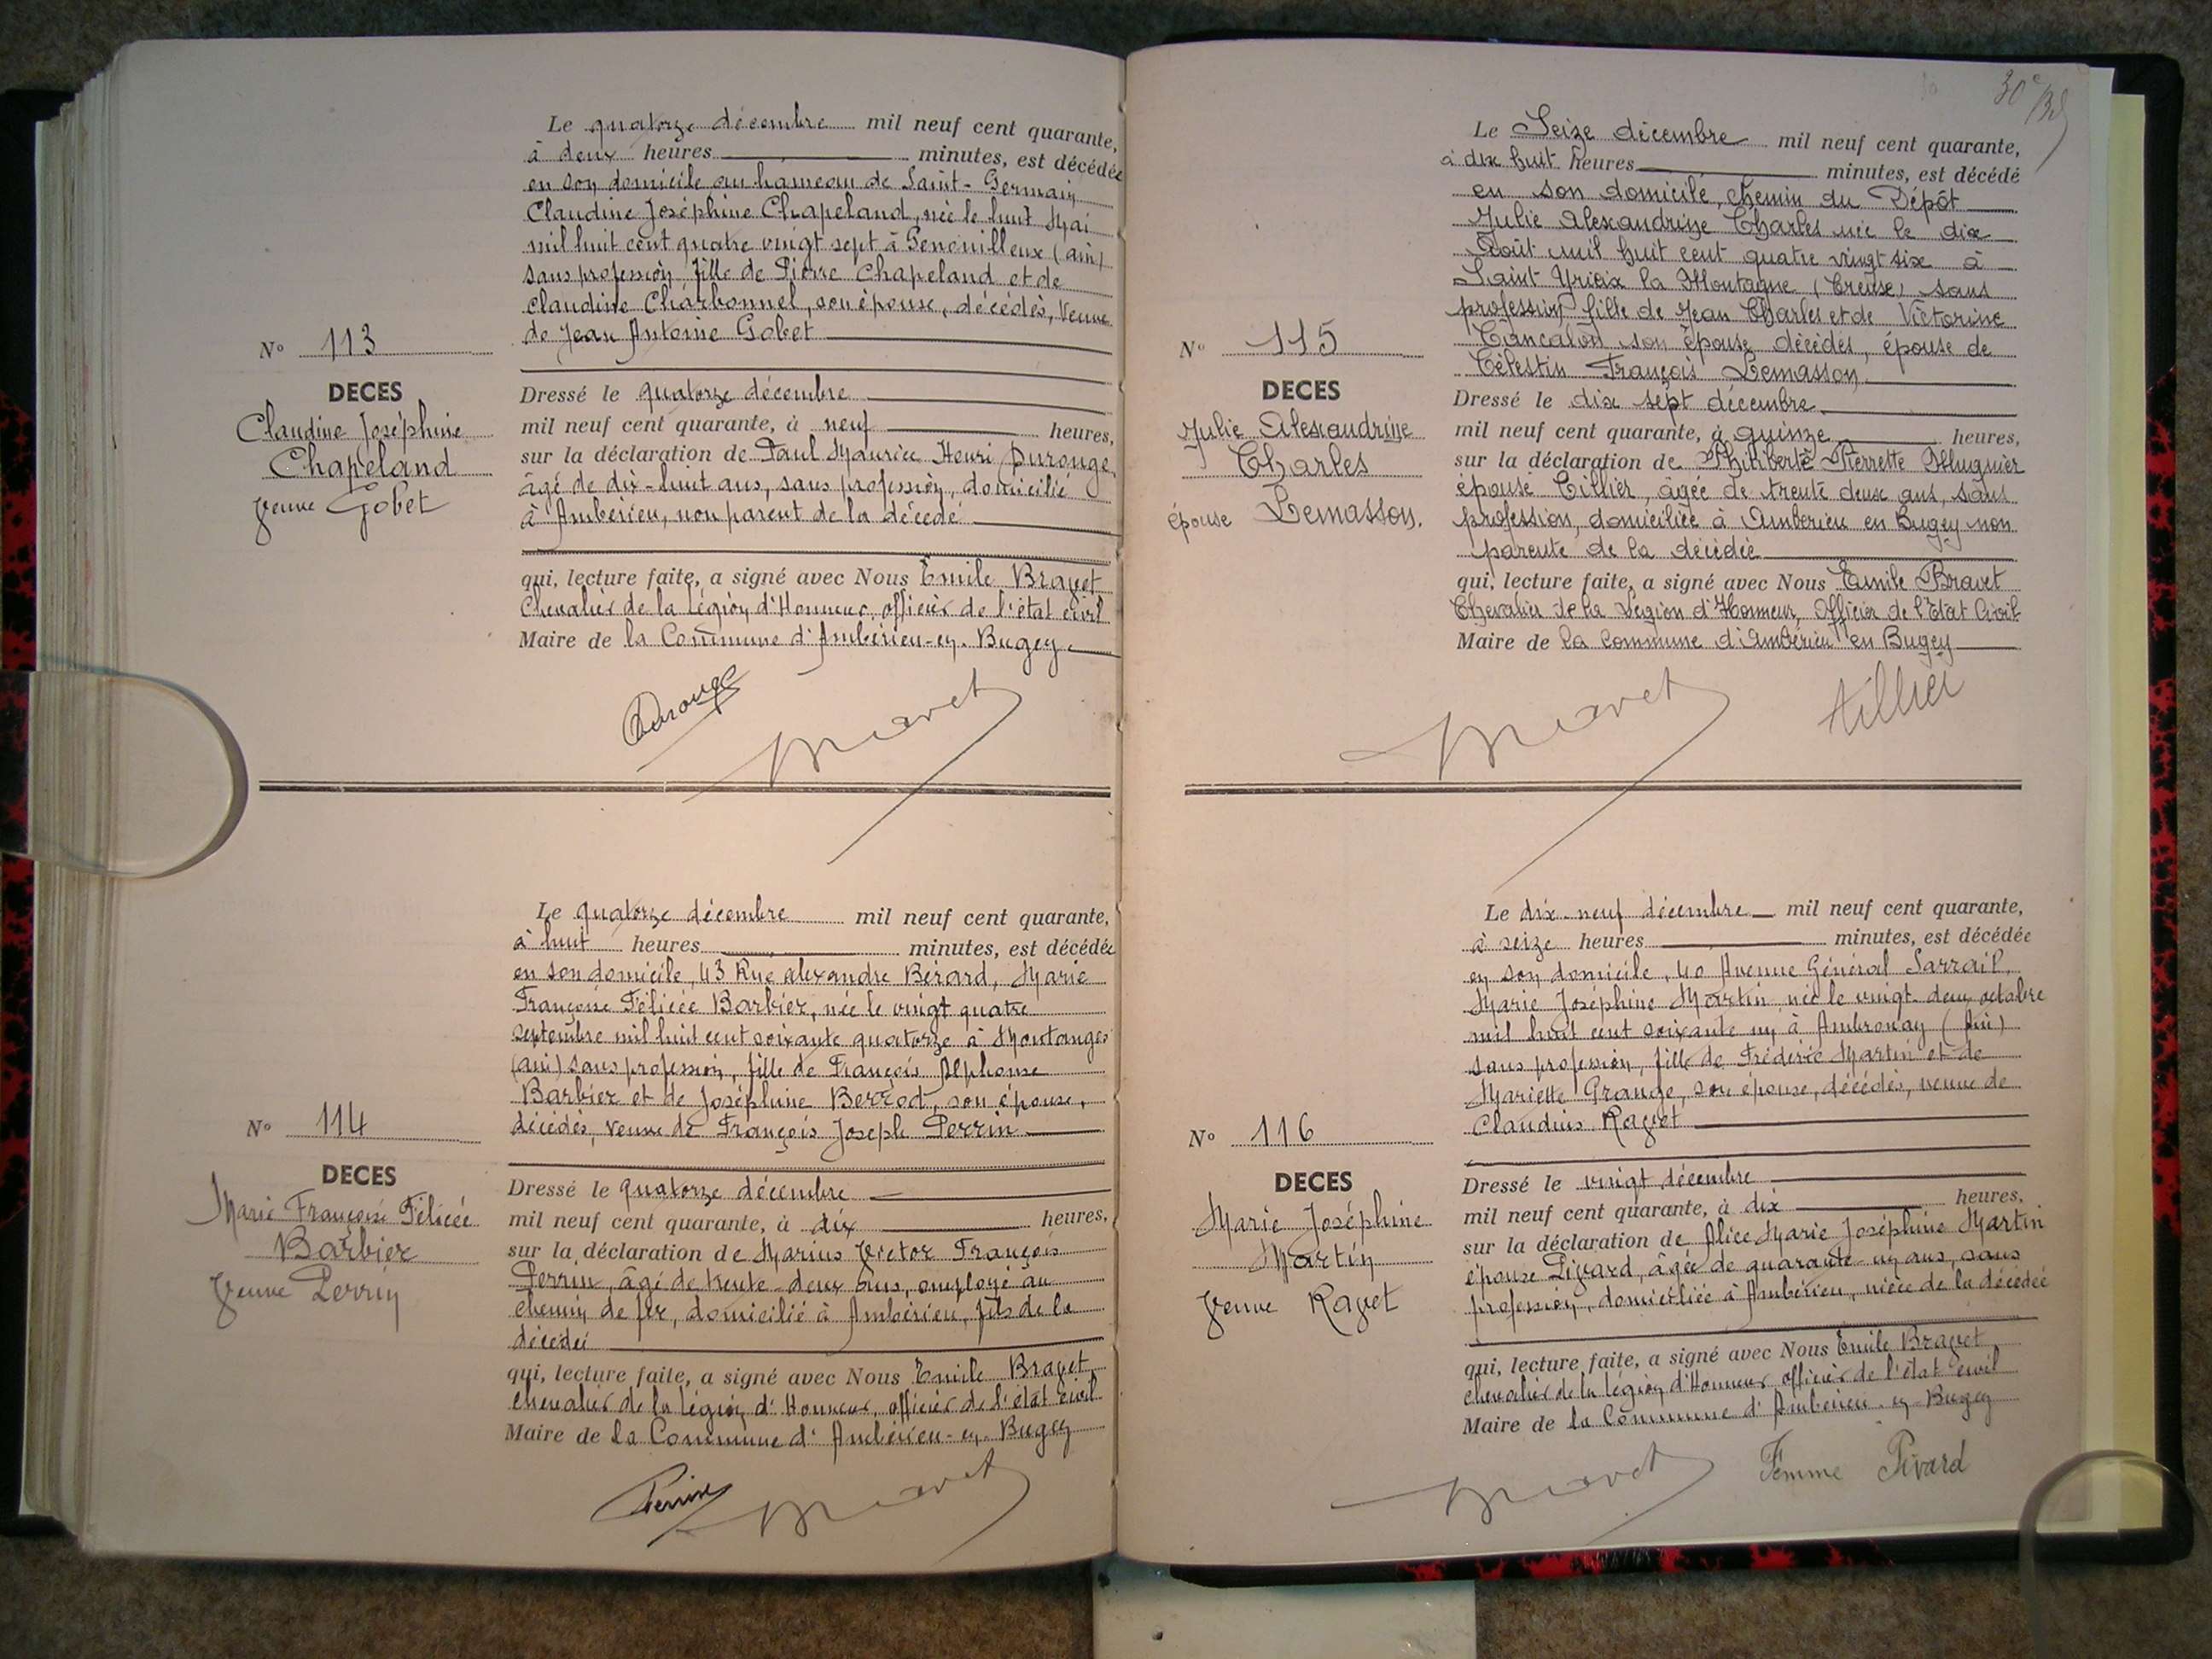 Le quatorze décembre mil neuf cent quarante,
à deux heures minutes, est décédée
en son domicile au hameau de Saint-Germain
Claudine Joséphine Chapeland, née le huit Mai
mil huit cent quatre vingt sept à Genouilleux (ain)
sans profession, fille de Pierre Chapeland et de
Claudine Charbonnel, son épouse, décédés, Veuve
de Jean Antoine Gobet
N° 113
DECES
Claudine Joséphine
Chapeland
Veuve Gobet
Dressé le quatorze décembre
mil neuf cent quarante, à neuf heures,
sur la déclaration de Paul Maurice Henri Durouge
âgé de dix-huit ans, sans profession, domicilié
à Ambérieu, non parent de la décédé
qui, lecture faite, a signé avec Nous Emile Bravet
Chevalier de la Légion d'Honneur, officier de l'état civil
Maire de la Commune d'Ambérieu-en-Bugey.
Durouge
Bravet
Le quatorze décembre mil neuf cent quarante,
à huit heures minutes, est décédée
en son domicile, 43 Rue Alexandre Bérard, Marie
Françoise Félicée Barbier, née le vingt quatre
septembre mil huit cent soixante quatorze à Montanges
(ain) sans profession, fille de François Alphonse
Barbier et de Joséphine Berrod, son épouse,
décédés, veuve de François Joseph Perrin
N° 114
DECES
Marie Françoise Félicée
Barbier
Veuve Perrin
Dressé le quatorze décembre
mil neuf cent quarante, à dix heures,
sur la déclaration de Marius Victor François
Perrin, âgé de trente-deux ans, employé au
chemin de fer, domicilié à Ambérieu, fils de la
décédée
qui, lecture faite, a signé avec Nous Emile Bravet
chevalier de la Légion d'Honneur, officier de l'état civil
Maire de la Commune d'Ambérieu-en-Bugey
Perrin
Bravet
30e
Le Seize décembre mil neuf cent quarante,
à dix huit heures minutes, est décédé
en son domicile, chemin du Dépôt
Julie Alexandrine Charles née le dix
Août mil huit cent quatre vingt six à
Saint Yrieix la Montagne (Creuse) sans
profession fille de Jean Charles et de Victorine
son épouse décédés, épouse de
Célestin François Lemasson
N° 115
DECES
Julie Alexandrine
Charles
épouse Lemasson.
Dressé le dix sept décembre
mil neuf cent quarante, à quinze heures,
sur la déclaration de Philiberte Pierrette Mugnier
épouse Tillier, âgée de trente deux ans, sans
profession, domiciliée à Ambérieu en Bugey non
parente de la décédée
qui, lecture faite, a signé avec Nous Emile Bravet
Chevalier de la Légion d'Honneur, Officier de l'Etat Civil
Maire de la Commune d'Ambérieu en Bugey
Bravet
tillier
Le dix-neuf décembre mil neuf cent quarante,
à seize heures minutes, est décédée
en son domicile, 40 Avenue Général Sarrail,
Marie Joséphine Martin née le vingt-deux octobre
mil huit cent soixante un à Ambronay (Ain)
sans profession, fille de Frédéric Martin et de
Mariette Grange, son épouse, décédés, veuve de
Claudius Ravet
N° 116
DECES
Marie Joséphine
Martin
Veuve Ravet
Dressé le vingt décembre
mil neuf cent quarante, à dix heures,
sur la déclaration de Alice Marie Joséphine Martin
épouse Pivard, âgée de quarante-un ans, sans
profession, domiciliée à Ambérieu, nièce de la décédée
qui, lecture faite, a signé avec Nous Emile Bravet
chevalier de la Légion d'Honneur officier de l'état civil
Maire de la Commune d'Ambérieu-en-Bugey
Bravet
Femme Pivard